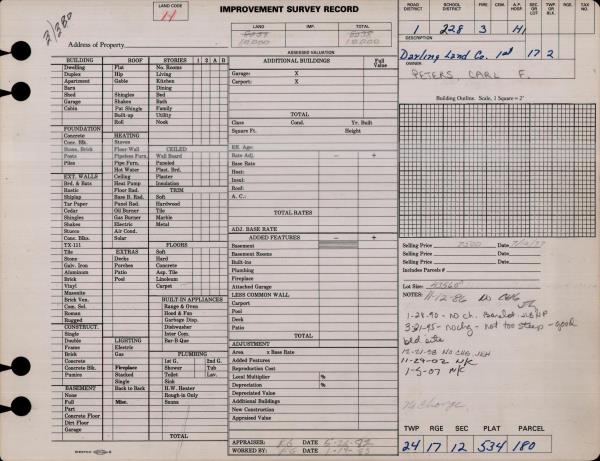 LAND CODE
IMPROVEMENT SURVEY RECORD
ROAD DISTRICT SCHOOL DISTRICT FIRE CEM. A.P. HOSP SEC. OR LOT TWP. OR BLK. RGE. TAX NO.
1 228 3 H1
2/280
LAND IMP. TOTAL
10,000 10,000
Address of Property
ASSESSED VALUATION
DESCRIPTION
Darling Land Co. 1st 17 2
PETERS, CARL F.
BUILDING Roof STORIES 1 2 A B
Dwelling Flat No. Rooms
Duplex Hip Living
Apartment Gable Kitchen
Barn Dining
Shed Shingles Bed
Garage Shakes Bath
Cabin Pat Shingle Family
Built-up Utility
Roll Nook
FOUNDATION
Concrete HEATING
Conc. Blk. Stoves
Stone, Brick Floor-Wall CEILED
Posts Pipeless Furn. Wall Board
Piles Pipe Furn. Paneled
Hot Water Plast. Brd.
EXT. WALLS Ceiling Plaster
Brd. & Bats Heat Pump Insulation
Rustic Floor Rad. TRIM
Shiplap Base B. Rad. Soft
Tar Paper Panel Rad. Hardwood
Cedar Oil Burner Tile
Shingles Gas Burner Marble
Shakes Electric Metal
Stucco Air Cond.
Conc. Blks. Solar
TX-111 FLOORS
Tile EXTRAS Soft
Stone Decks Hard
Galv. Iron Porches Concrete
Aluminum Patio Asp. Tile
Brick Pool Linoleum
Vinyl Carpet
Masonite
Brick Ven. BUILT-IN APPLIANCES
Com. Sel. Range & Oven
Roman Hood & Fan
Rugged Garbage Disp.
CONSTRUCT. Dishwasher
Single Inter Com.
Double LIGHTING Bar-B-Que
Frame Electric
Brick Gas PLUMBING
Concrete 1st G. 2nd G.
Concrete Blk. Fireplace Shower Tub
Pumice Stacked Toilet Lav.
Single Sink
BASEMENT Back to Back H.W. Heater
None Rough-in Only
Full Misc. Sauna
Part
Concrete Floor
Dirt Floor
Garage
TOTAL
ADDITIONAL BUILDINGS Full Value
Garage: X
Carport: X
TOTAL
Class Cond. Yr. Built
Square Ft. Height
Eff. Age:
Rate Adj. - +
Base Rate
Heat:
Insul:
Roof:
A. C.:
TOTAL RATES
ADJ. BASE RATE
ADDED FEATURES - +
Basement
Basement Rooms
Built-ins
Plumbing
Fireplace
Attached Garage
LESS COMMON WALL
Carport
Pool
Deck
Patio
TOTAL
ADJUSTMENT
Area x Base Rate
Added Features
Reproduction Cost
Local Multiplier %
Depreciation %
Depreciated Value
Additional Buildings
New Construction
Appraised Value
APPRAISER: DATE
WORKED BY: DATE
Building Outline. Scale, 1 Square = 2'
Selling Price 7500 Date
Selling Price Date
Includes Parcels #
Lot Size:
NOTES: 11-12-86 No CHG
1-24-90 - no ch.
3-21-95 - no chg - not too steep - good
bld site
12-21-98 No CHG. JEH
11-29-02 N/C
1-5-07 N/C
No Change
TWP RGE SEC PLAT PARCEL
24 17 12 534 180